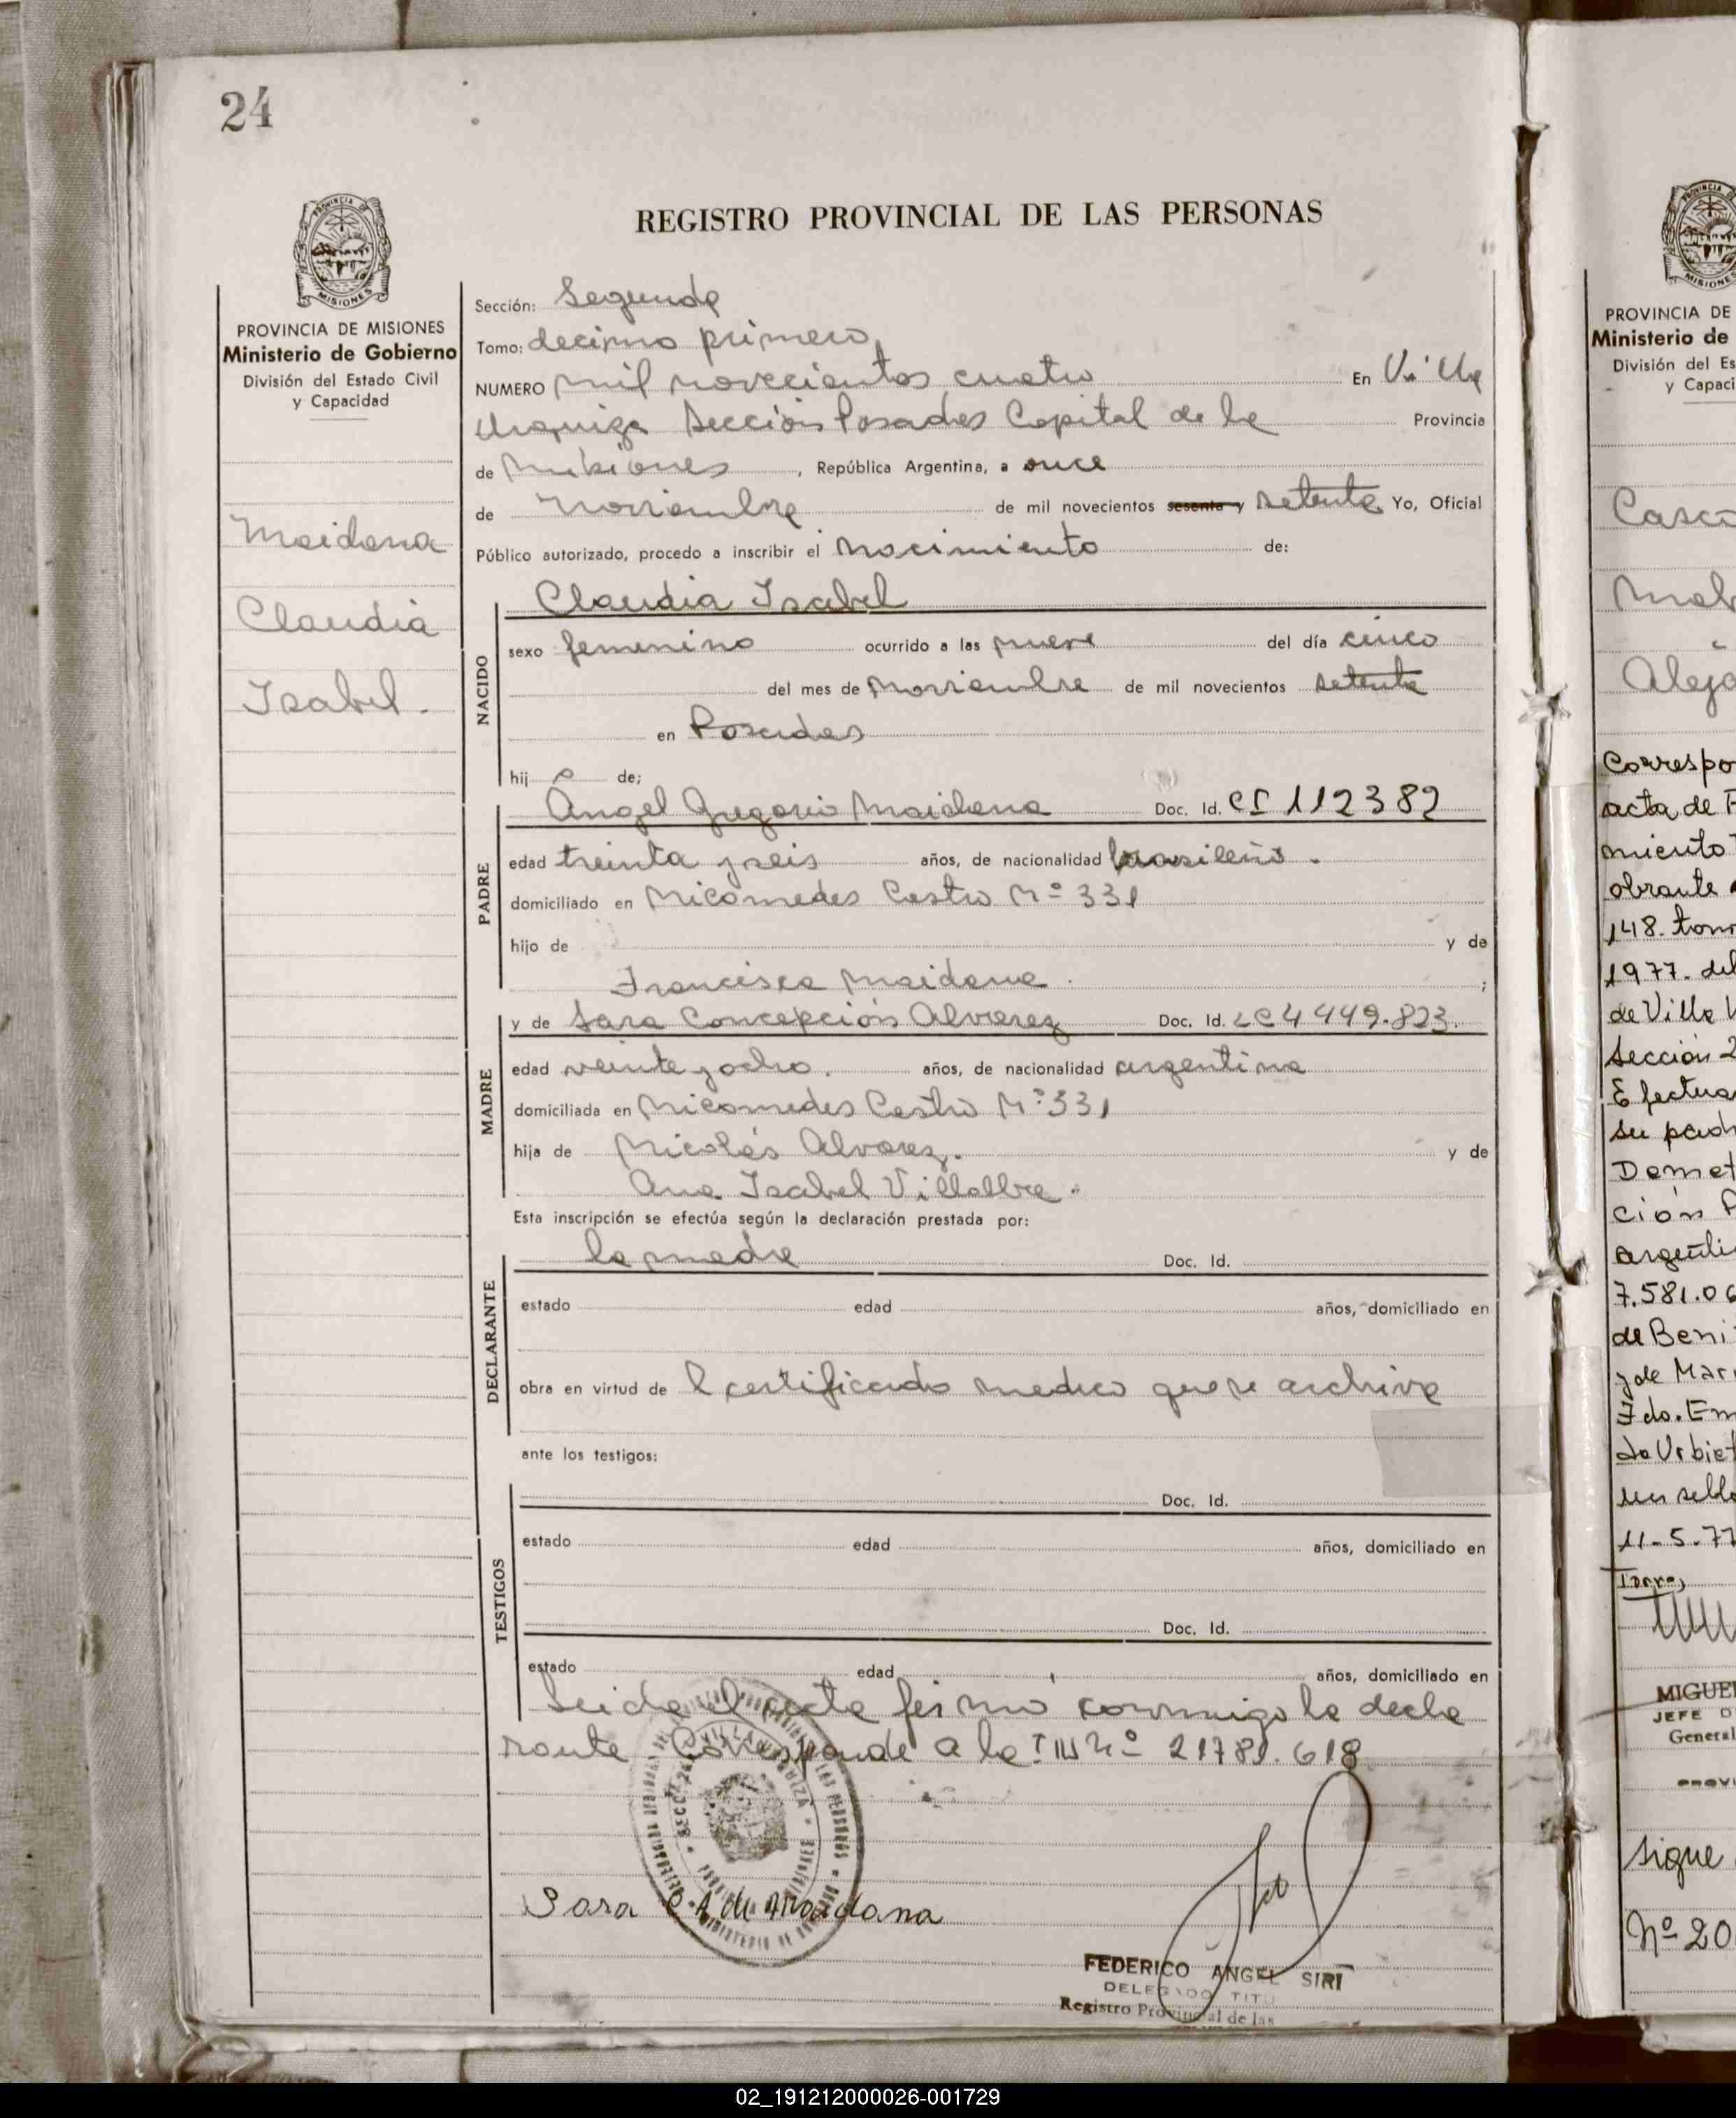 24
REGISTRO PROVINCIAL DE LAS PERSONAS
PROVINCIA DE MISIONES
Ministerio de Gobierno
División del Estado Civil
y Capacidad
Maidana
Claudia
Isabel.
Sección: Segunda
Tomo: decimo primero
NUMERO mil novecientos cuatro En Villa
Urquiza Sección Posadas Capital de la Provincia
de Misiones, República Argentina, a once
de noviembre de mil novecientos sesenta y setenta Yo, Oficial
Público autorizado, procedo a inscribir el nacimiento de:
Claudia Isabel
NACIDO
sexo femenino ocurrido a las nueve del día cinco
del mes de noviembre de mil novecientos setenta
en Posadas
hij a de;
PADRE
Angel Gregorio Maidana Doc. Id. CI 112382
edad treinta y seis años, de nacionalidad brasileño.
domiciliado en Nicomedes Castro Nº 331
hijo de y de
Francisca Maidana. ;
MADRE
y de Sara Concepción Alvarez Doc. Id. LC 4449.823.
edad veinte y ocho. años, de nacionalidad argentina
domiciliada en Nicomedes Castro Nº 331
hija de Nicolás Alvarez. y de
Ana Isabel Villalba.
Esta inscripción se efectúa según la declaración prestada por:
DECLARANTE
la madre Doc. Id.
estado edad años, domiciliado en
obra en virtud de l certificado medico que se archiva
ante los testigos:
TESTIGOS
Doc. Id.
estado edad años, domiciliado en
Doc. Id.
estado edad años, domiciliado en
Leida el acta firmo conmigo la decla
rante Corresponde a la Nº 21781.618
Sara C. A. de Maidana
FEDERICO ANGEL SIRI
DELEGADO TITU
Registro Provincial de las
PROVINCIA DE
Ministerio de
División del Es
y Capaci
Casco
Alej
Correspo
acta de
miento
obrante
148. tom
1977. del
de Villa
Sección 2
Efectua
su padr
Demet
ción
argenti
7.581.06
de Beni
y de Mar
Fdo. Em
da Urbiet
un sello
11-5-77
MIGUEL
JEFE D
General
PROVI
Sigue
Nº 20
02_191212000026-001729